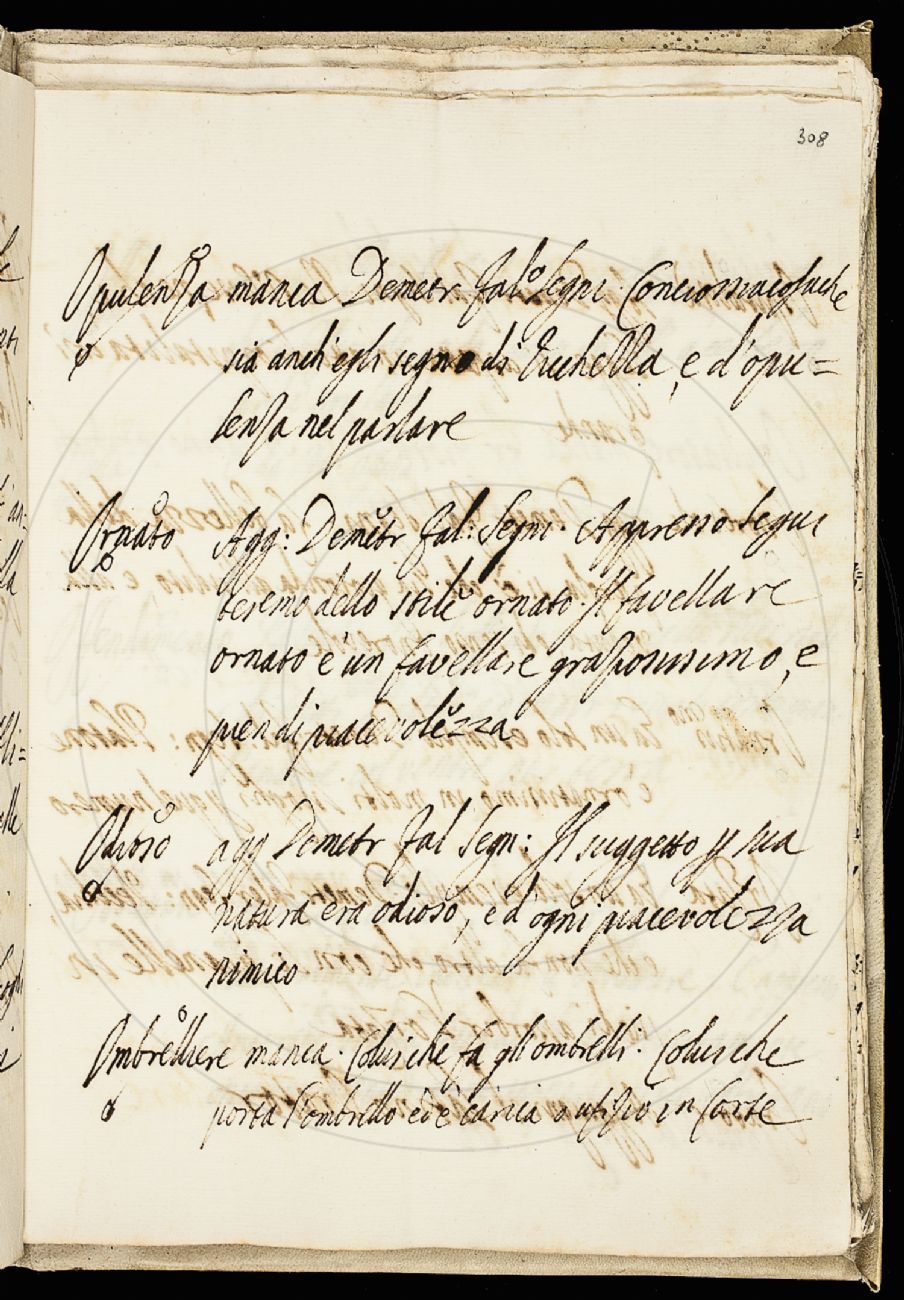 308
Opulenza manca Demetr. Fal.º Segni. Conciossiacosache
sia anch'egli segno di ricchezza, e d'opu=
lenza nel parlare
Ornato Agg: Demetr Fal: Segni. Appresso segui
teremo dello stile ornato. Il favellare
ornato è un favellare graziosissimo, e
pien di piacevolezza
Odioso agg Demetr Fal Segn: Il suggetto p sua
natura era odioso, e d'ogni piacevolezza
nimico
Ombrelliere manca. Colui che fa gli ombrelli. Colui che
porta l'ombrello ed è carica o ufizio in Corte